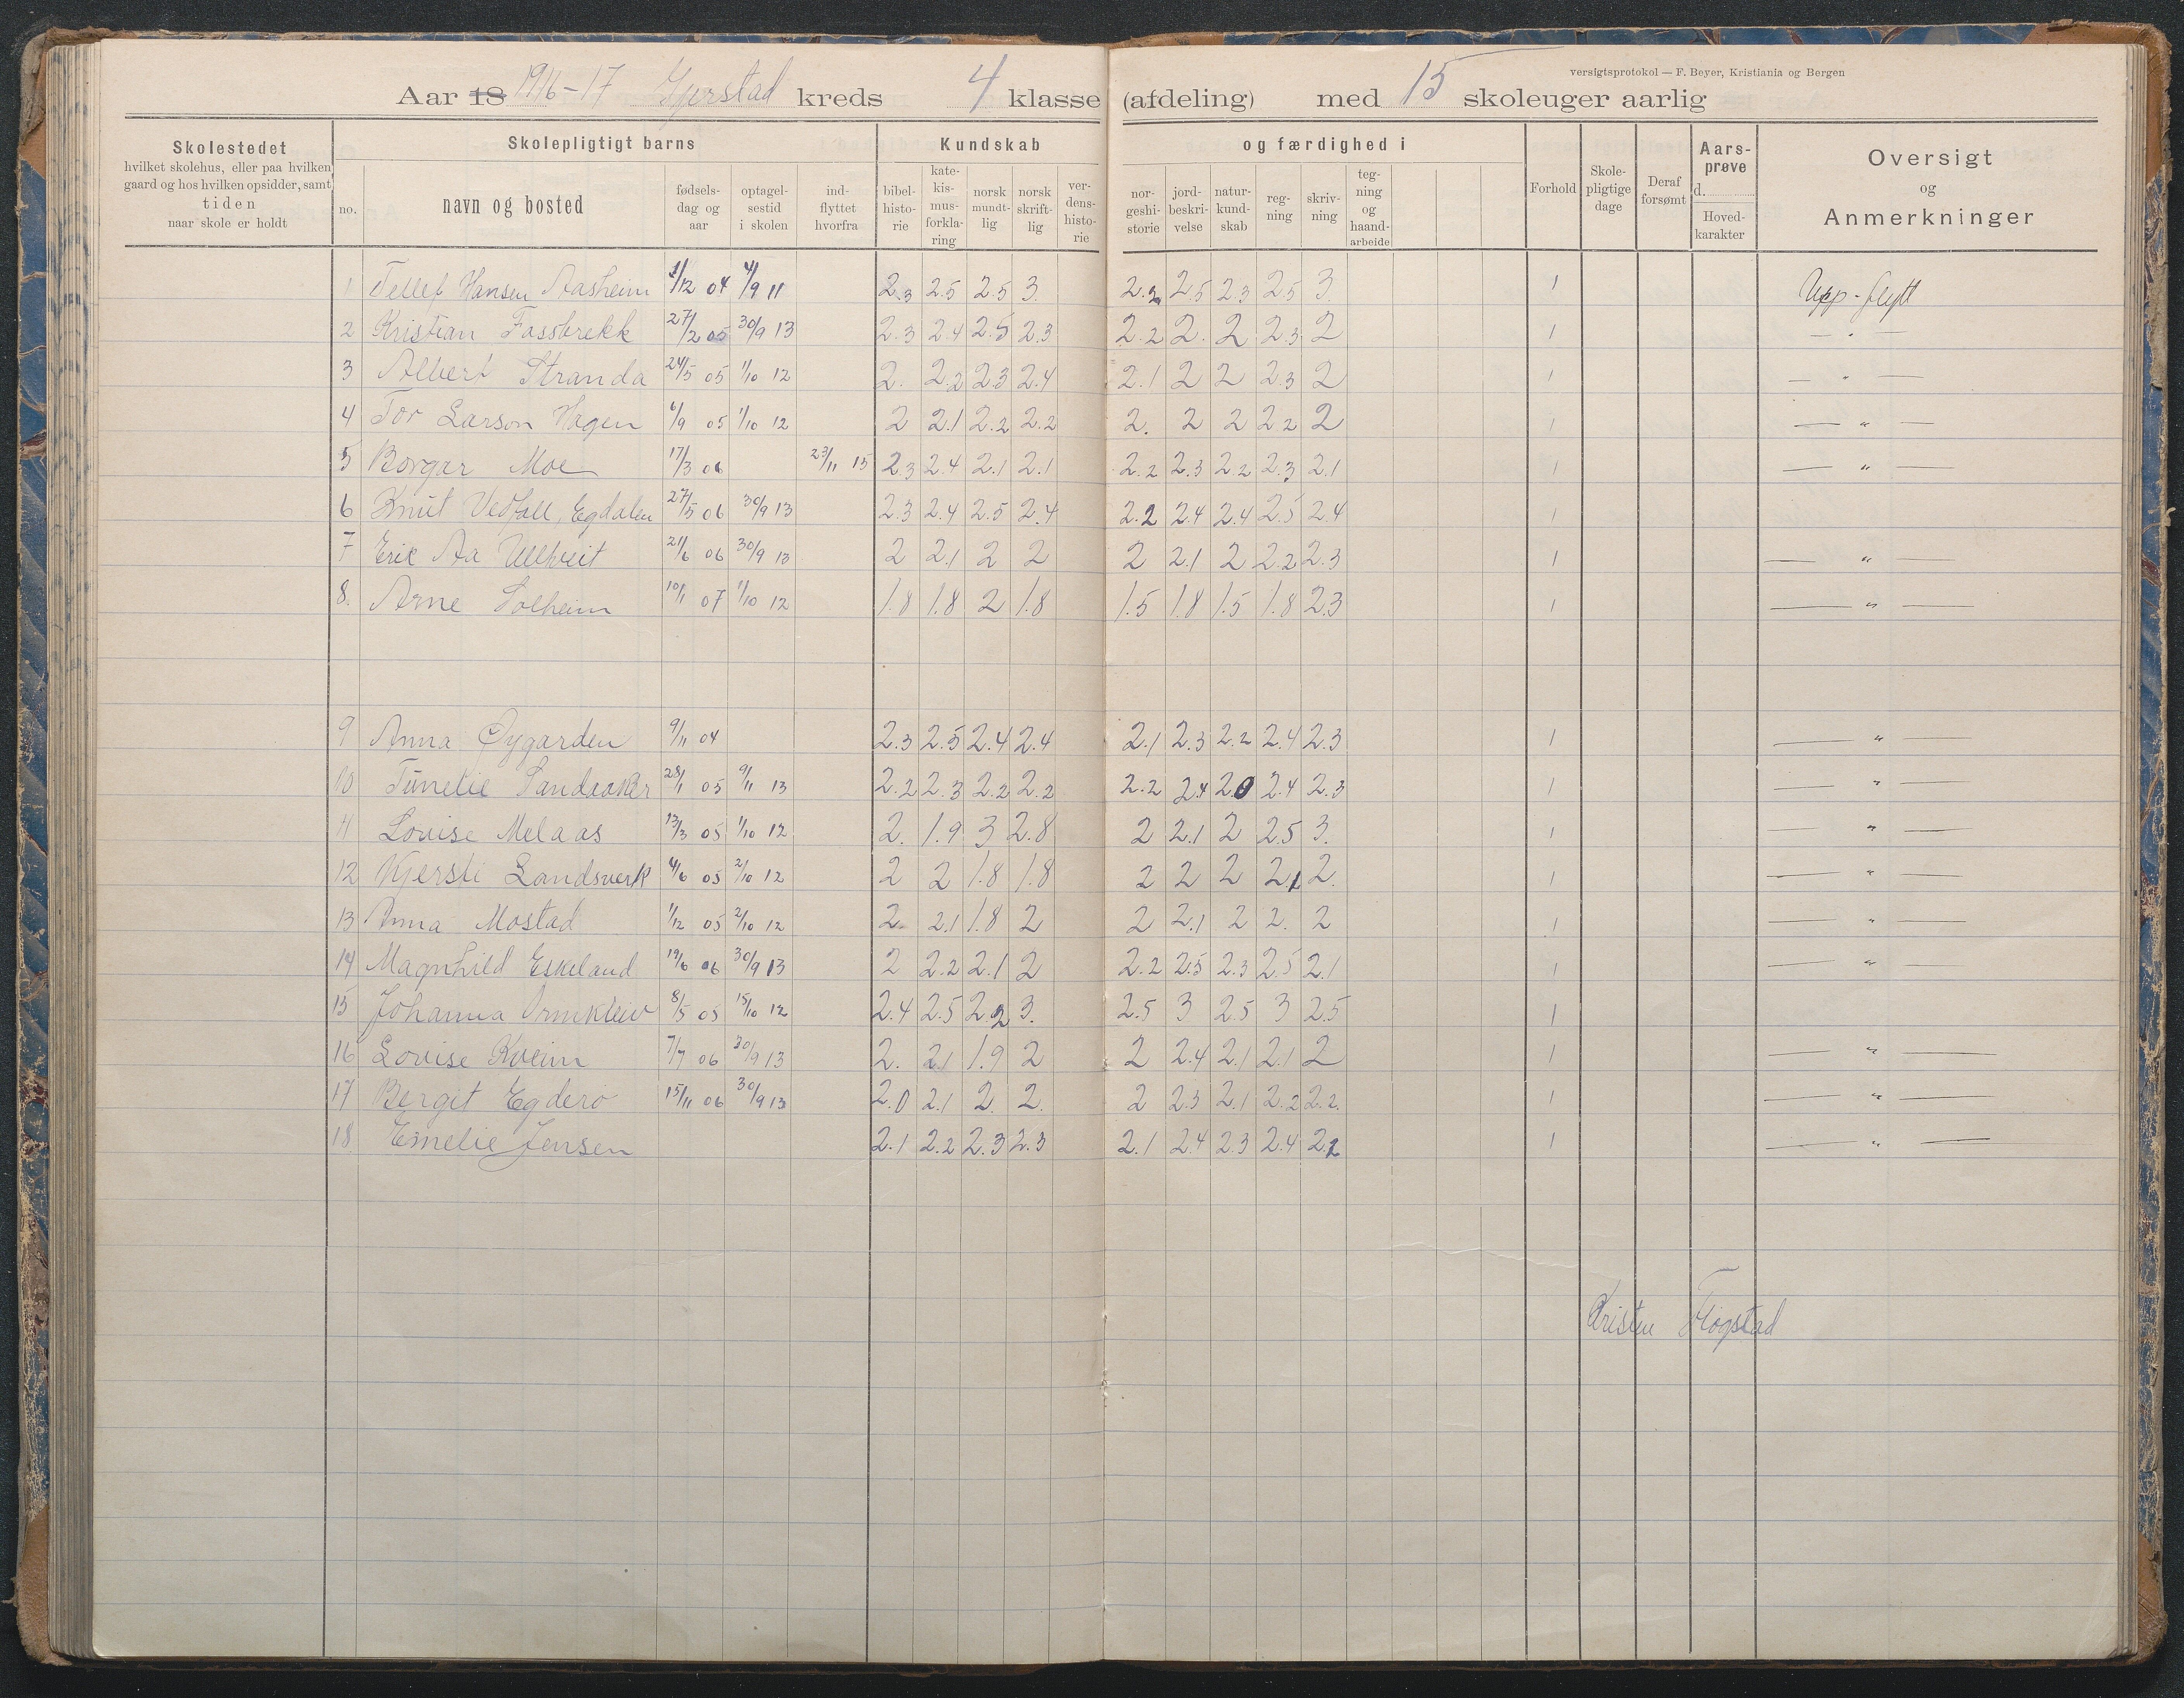 versigtsprotokol — F. Beyer, Kristiania og Bergen
Aar 18 1916-17 Gjerstad kreds 4 klasse (afdeling) med 15 skoleuger aarlig
Skolestedet hvilket skolehus, eller paa hvilken gaard og hos hvilken opsidder, samt tiden naar skole er holdt
Skolepligtigt barns
Kundskab og færdighed i
no. navn og bosted fødsels-dag og aar optagel-sestid i skolen ind-flyttet hvorfra bibel-histo-rie kate-kis-mus-forkla-ring norsk mundt-lig norsk skrift-lig ver-dens-histo-rie nor-geshi-storie jord-beskri-velse natur-kund-skab reg-ning skriv-ning teg-ning og haand-arbeide Forhold Skole-pligtige dage Deraf forsømt Aars-prøve d. Hoved-karakter Oversigt og Anmerkninger
1 Tellef Hansen Aasheim 1/12 04 4/9 11 2.3 2.5 2.5 3. 2.2 2.5 2.3 2.5 3. 1 Upp-flytt
2 Kristian Fossbrekk 27/2 05 30/9 13 2.3 2.4 2.5 2.3 2.2 2. 2 2.3 2 1 — " —
3 Albert Stranda 24/5 05 1/10 12 2. 2.2 2.3 2.4 2.1 2 2 2.3 2 1 — " —
4 Tor Larson Hagen 6/9 05 1/10 12 2 2.1 2.2 2.2 2. 2 2 2.2 2 1 — " —
5 Borgar Moe 17/3 06 23/11 15 2.3 2.4 2.1 2.1 2.2 2.3 2.2 2.3 2.1 1 — " —
6 Knut Vedfall, Egdalen 27/5 06 30/9 13 2.3 2.4 2.5 2.4 2.2 2.4 2.4 2.5 2.4 1
7 Eric Aa Ullhveit 21/6 06 30/9 13 2 2.1 2 2 2 2.1 2 2.2 2.3 1 — " —
8. Arne Solheim 10/1 07 1/10 12 1.8 1.8 2 1.8 1.5 1.8 1.5 1.8 2.3 1 — " —
9 Anna Øygarden 9/11 04 2.3 2.5 2.4 2.4 2.1 2.3 2.2 2.4 2.3 1 — " —
10 Tünelie Sandaaker 28/1 05 9/11 13 2.2 2.3 2.2 2.2 2.2 2.4 2.0 2.4 2.3 1 — " —
11 Lovise Melaas 13/3 05 1/10 12 2. 1.9 3 2.8 2 2.1 2 2.5 3. 1 — " —
12 Kjersti Landsverk 4/6 05 2/10 12 2 2 1.8 1.8 2 2 2 2.1 2. 1 — " —
13 Anna Mostad 1/12 05 2/10 12 2. 2.1 1.8 2 2 2.1 2 2. 2 1 — " —
14 Magnhild Eskeland 19/6 06 30/9 13 2 2.2 2.1 2 2.2 2.5 2.3 2.5 2.1 1 — " —
15 Johanna Ormkleiv 8/5 05 15/10 12 2.4 2.5 2.2 3. 2.5 3 2.5 3 2.5 1
16 Lovise Kveim 7/7 06 30/9 13 2. 2.1 1.9 2 2 2.4 2.1 2.1 2 1 — " —
17 Bergit Egdero 15/11 06 30/9 13 2.0 2.1 2. 2. 2 2.3 2.1 2.2 2.2. 1 — " —
18 Emelie Jensen 2.1 2.2 2.3 2.3 2.1 2.4 2.3 2.4 2.2 1 — " —
Kristen Fløgstad